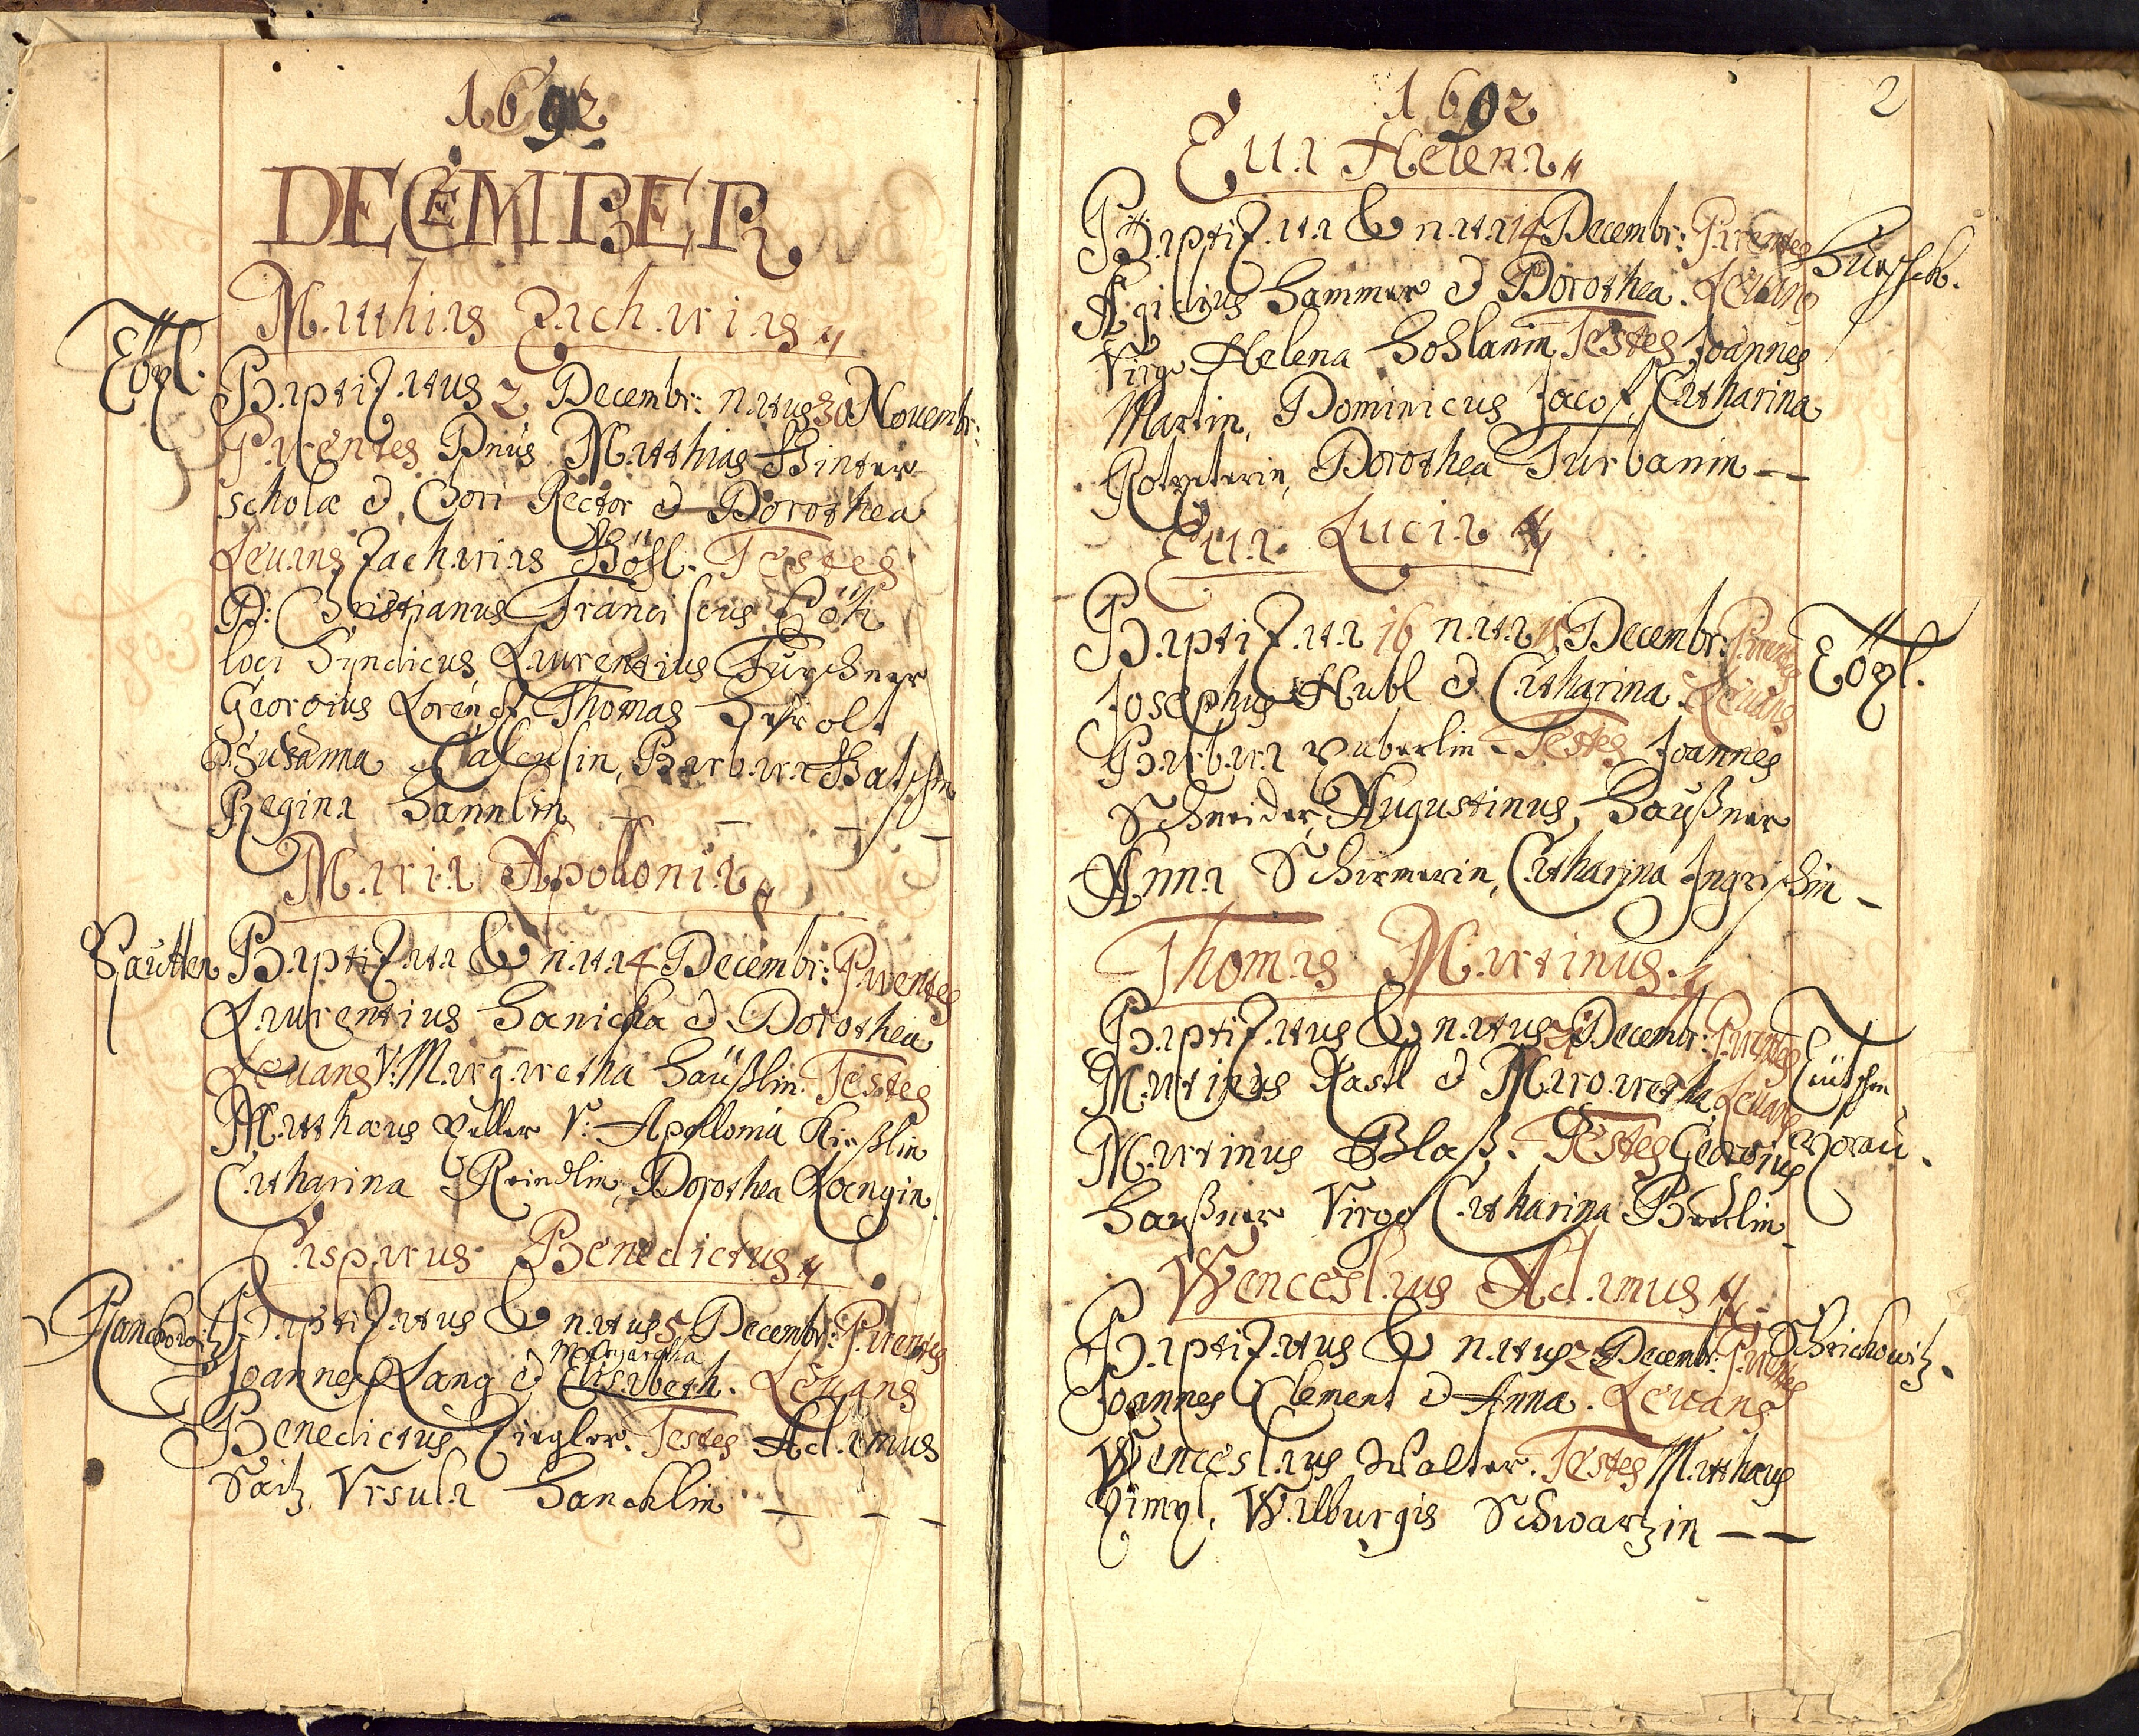 1692
DECEMBER
Matthias Zacharias
Töpl.
Baptizatus 2 Decembr: natus 30 Novembr:
Parentes Dnûs Matthias Winter
scholæ & Chori Rector & Dorothea
Levans Zacharias Tböhl. Testes
D: Christianus Franciscus
loci Syndicus, Laurentius Turschner
Georgius Lorentz Thomas Herolt
Susanna Barbara
Regina Hannlin
Maria Apollonia
Sautten
Baptizata & nata 4 Decembr: Parentes
Laurentius Hanicka & Dorothea
Levans V: Margaretha Haüßlin. Testes
Matthæus Zeller V: Apollonia Kießlin
Catharina Reindlin, Dorothea Langin.
Casparus Benedictus
Rancowitz
Baptizatus & natus 5 Decembr: Parentes
Margaretha
Joannes Lang & Elisabeth. Levans
Benedictus Ziegler. Testes Adamus
Saitz, Vrsula Hancklin
1692
2
Eva Helena
Baptizata & nata 14 Decembr: Parentes
Hurschk.
Ægidius Hammer & Dorothea. Levans
Virgo Helena Hohlanin Testes Joannes
Martin, Dominicus Jacob, Catharina
Dorothea Turbanin
Eva Lucia
Baptizata 16 nata 15 Decembr: Parentes
Töpl.
Josephus Hubl & Catharina. Levans
Barbara Zuberlin. Testes Joannes
Schneider, Augustinus Haußner
Anna Schirmerin, Catharina Ingrischin
Thomas Martinus.
Baptizatus & natus 21 Decembr: Parentes
Teütschen
Martinus Rastl & Margaretha Levans
Martinus Blaß. Testes Georgius
Morau.
Haußner Virgo Catharina Bredlin
Wenceslaus Adamus
Baptizatus & natus Decembr: Parentes
Schrickowitz.
Joannes Clement & Anna. Levans
Wenceslaus Walter. Testes Matthæus
Zimpl, Walburgis Schwartzin